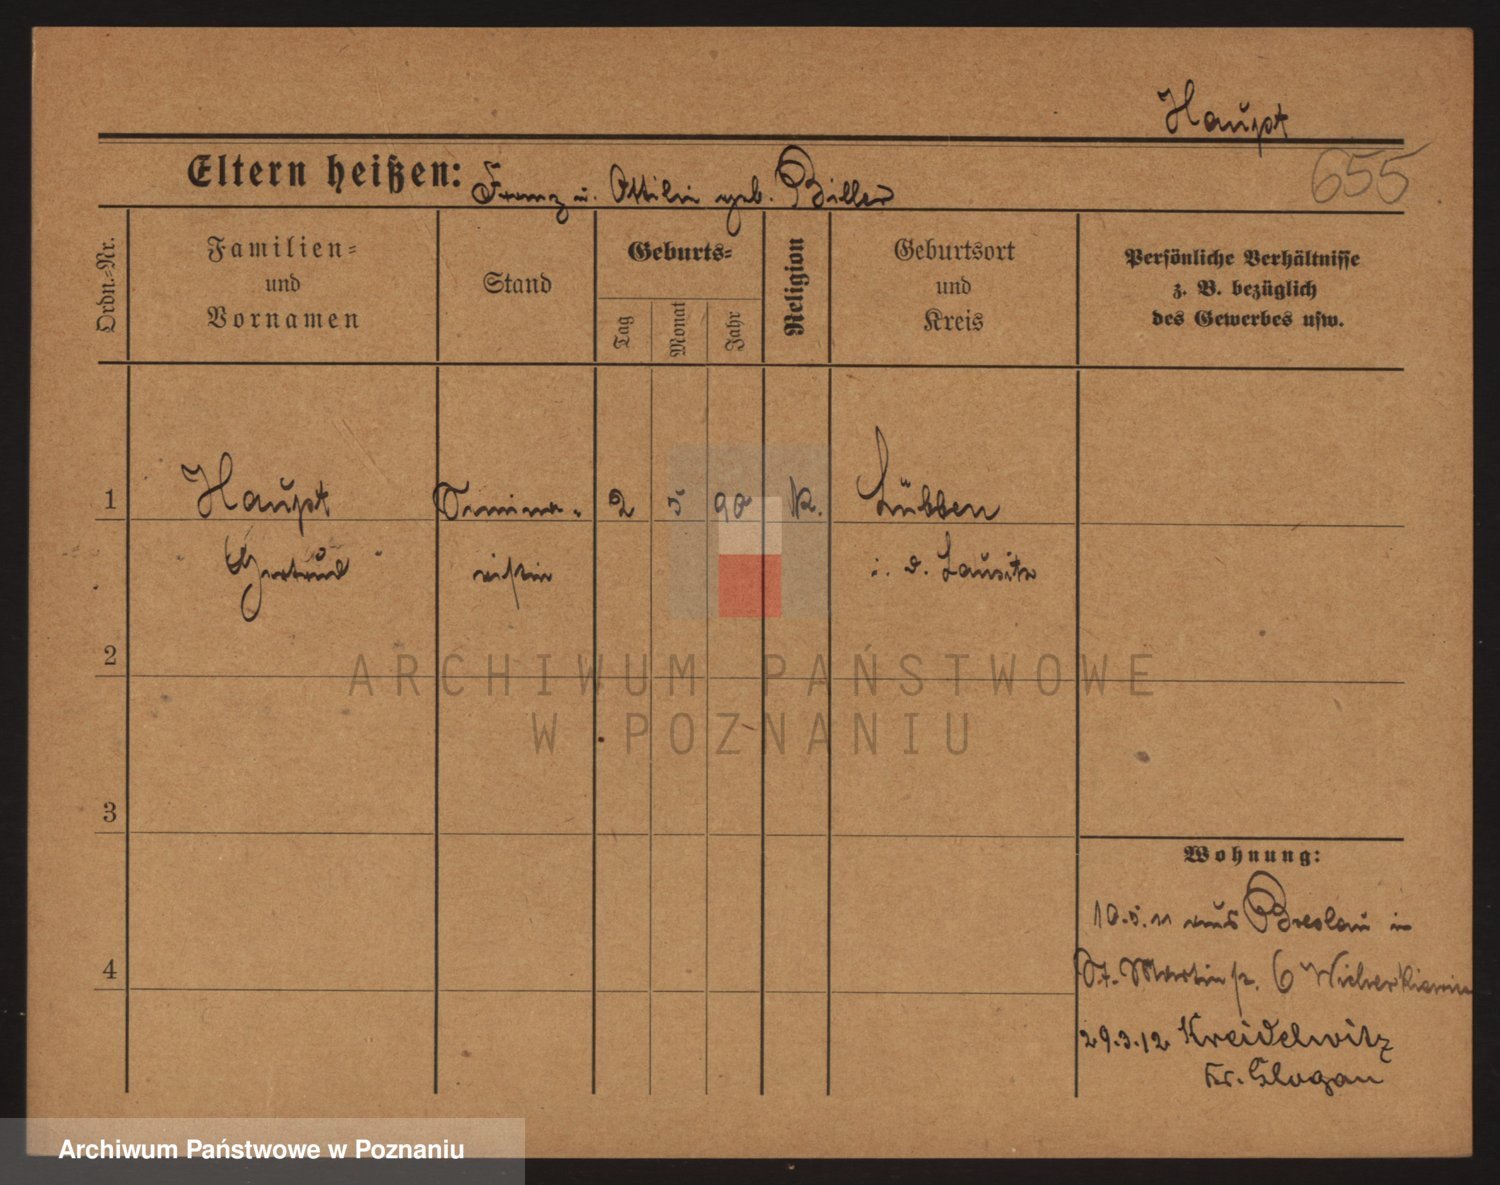 Haupt
655
Eltern heißen: Franz u. Ottilie geb. Biller
Ordn.-Nr.
Familien-
und
Vornamen
Stand
Geburts-
Tag
Monat
Jahr
Religion
Geburtsort
und
Kreis
Persönliche Verhältnisse
z. B. bezüglich
des Gewerbes usw.
1
Haupt
Semina-
2
5
90
K.
Lübben
Gertrud
ristin
i. d. Lausitz
2
ARCHIWUM PAŃSTWOWE
W POZNANIU
3
Wohnung:
10.5.11 aus Breslau in
4
St. Martin 6
29.3.12 Kreidelwitz
Kr. Glogau
Archiwum Państwowe w Poznaniu